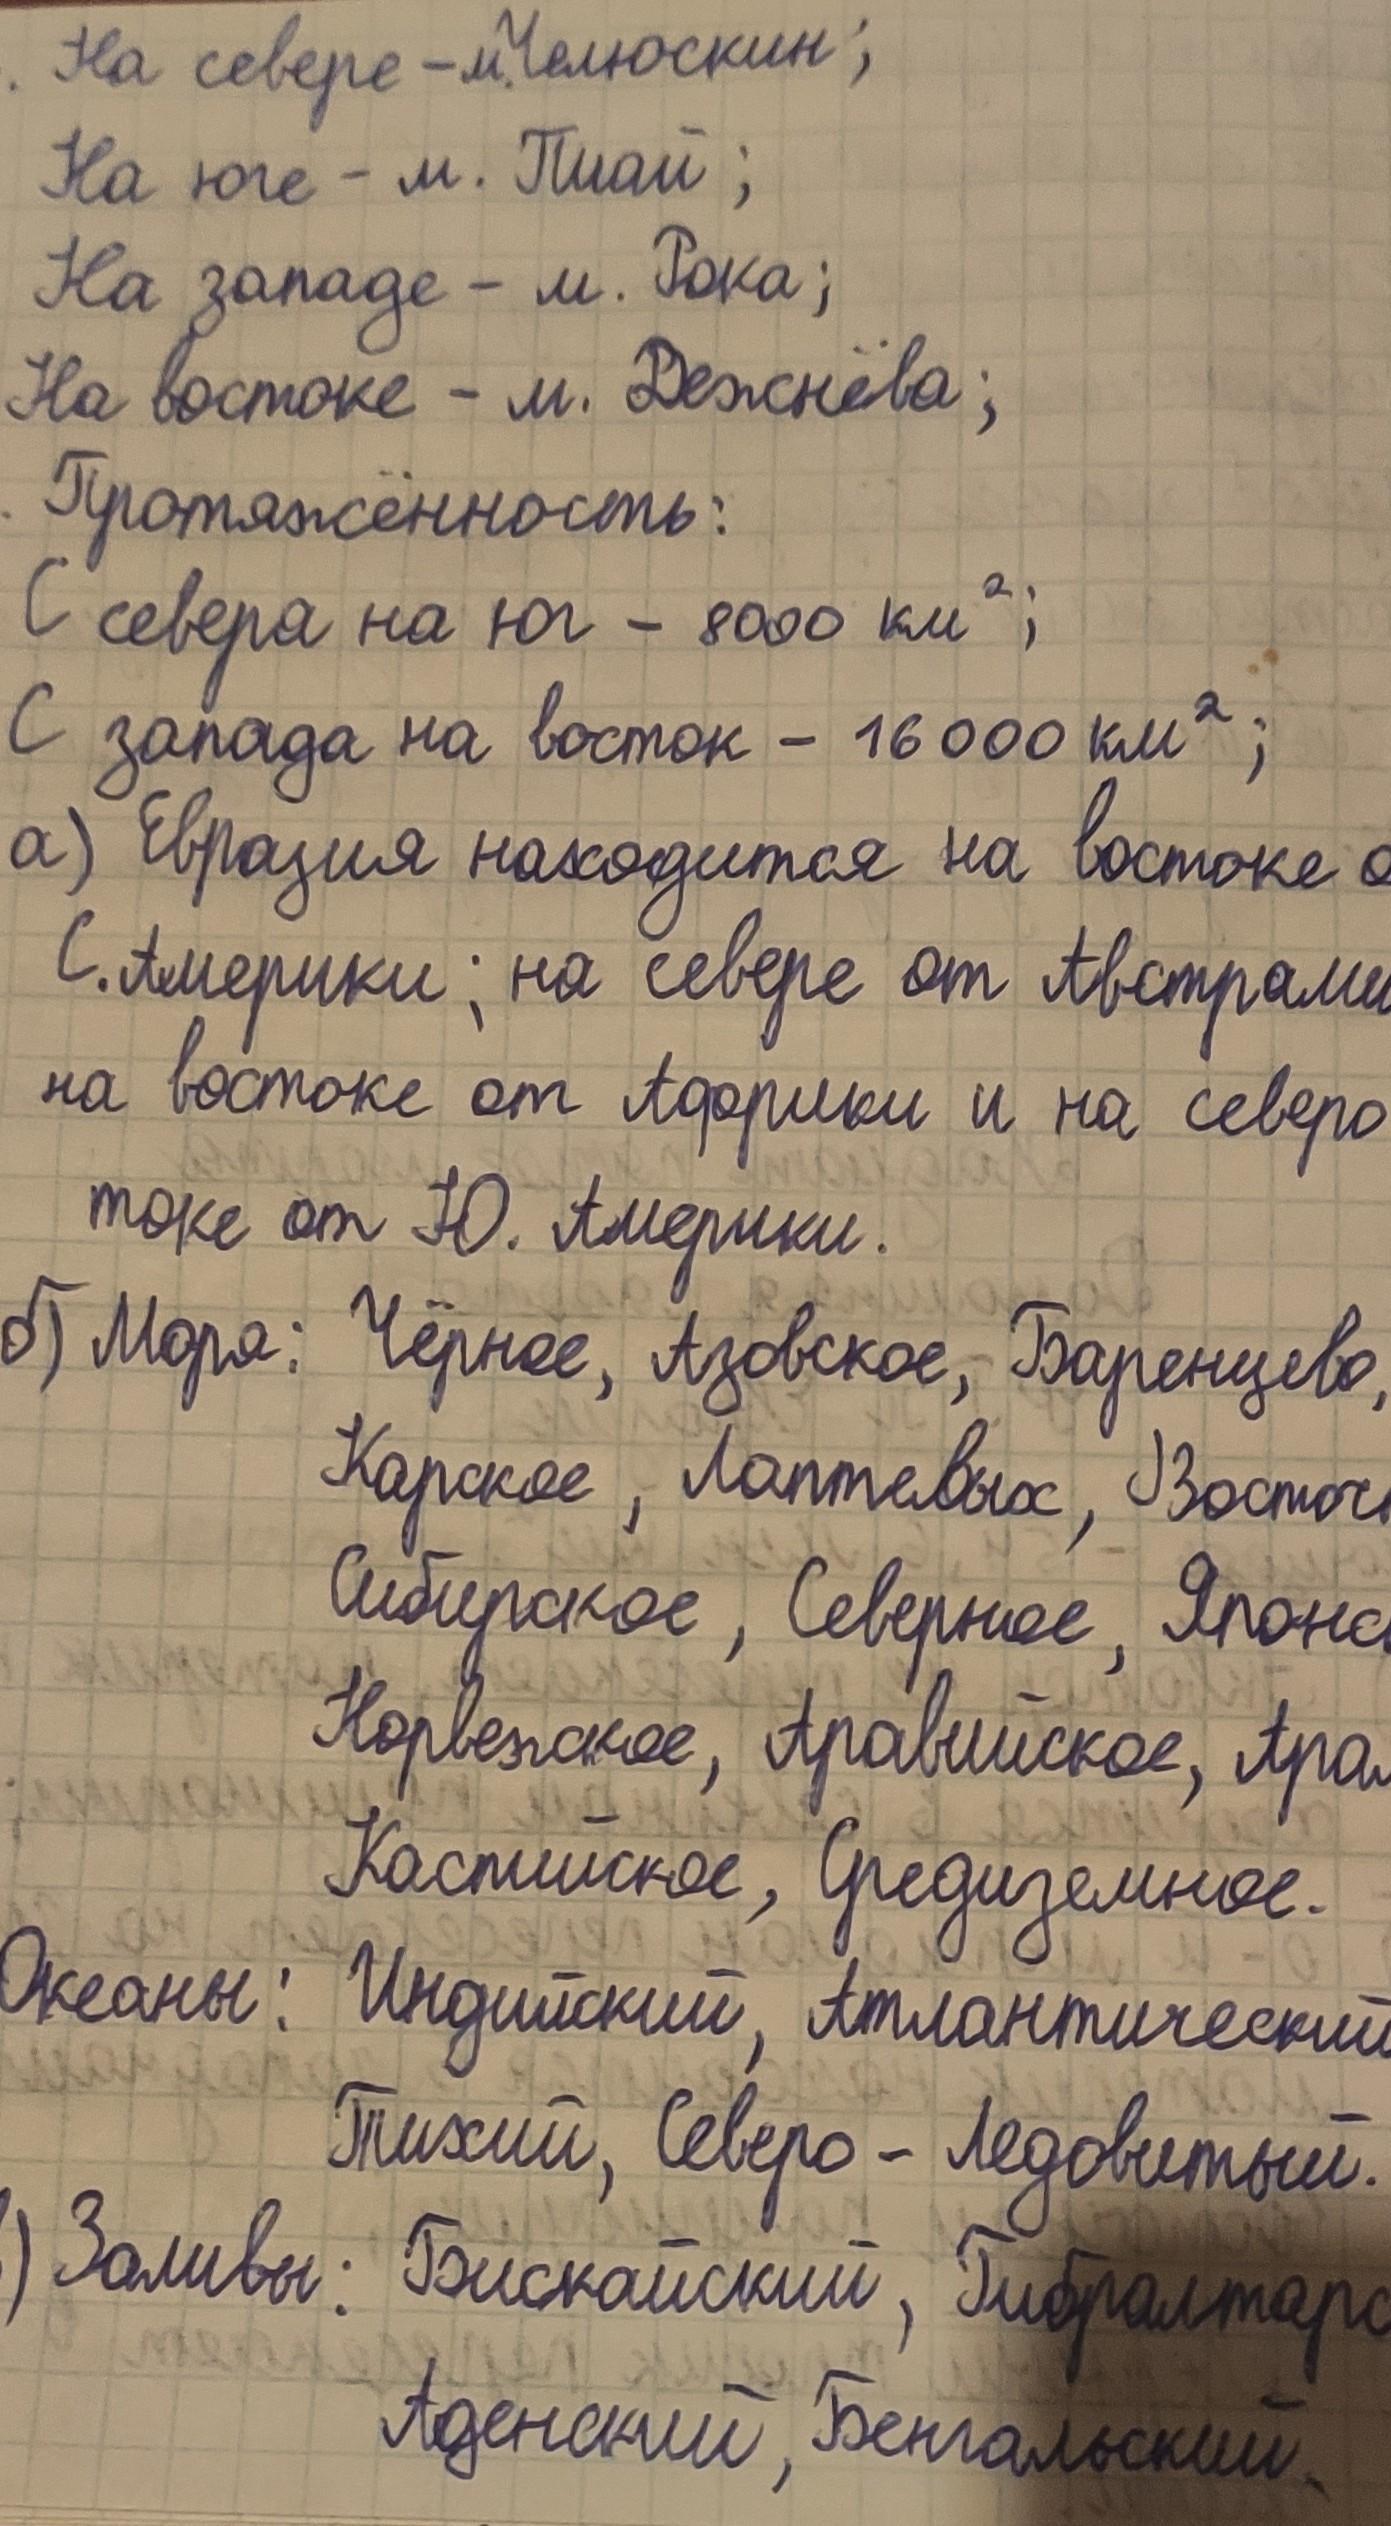 . На севере – м. Челюскин;
На юге – м. Пиай;
На западе – м. Рока;
На востоке – м. Дежнёва;
. Протяжённость:
С севера на юг – 8000 км²;
С запада на восток – 16 000 км²;
а) Евразия находится на востоке о
С. Америки; на севере от Австрали
на востоке от Африки и на северо
токе от Ю. Америки.
б) Моря: Чёрное, Азовское, Баренцево,
Карское, Лаптевых, Восточн
Сибирское, Северное, Японс
Норвежское, Аравийское, Арал
Каспийское, Средиземное.
Океаны: Индийский, Атлантический
Тихий, Северо – Ледовитый.
) Заливы: Бискайский, Гибралтарс
Аденский, Бенгальский.